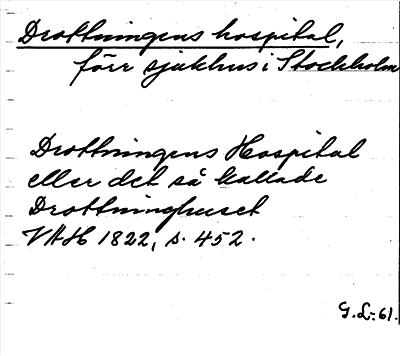 Drottningens hospital,
förr sjukhus i Stockholm
Drottningens Hospital
eller det så kallade
Drottninghuset
VAH 1822, s. 452.
G. L-61.